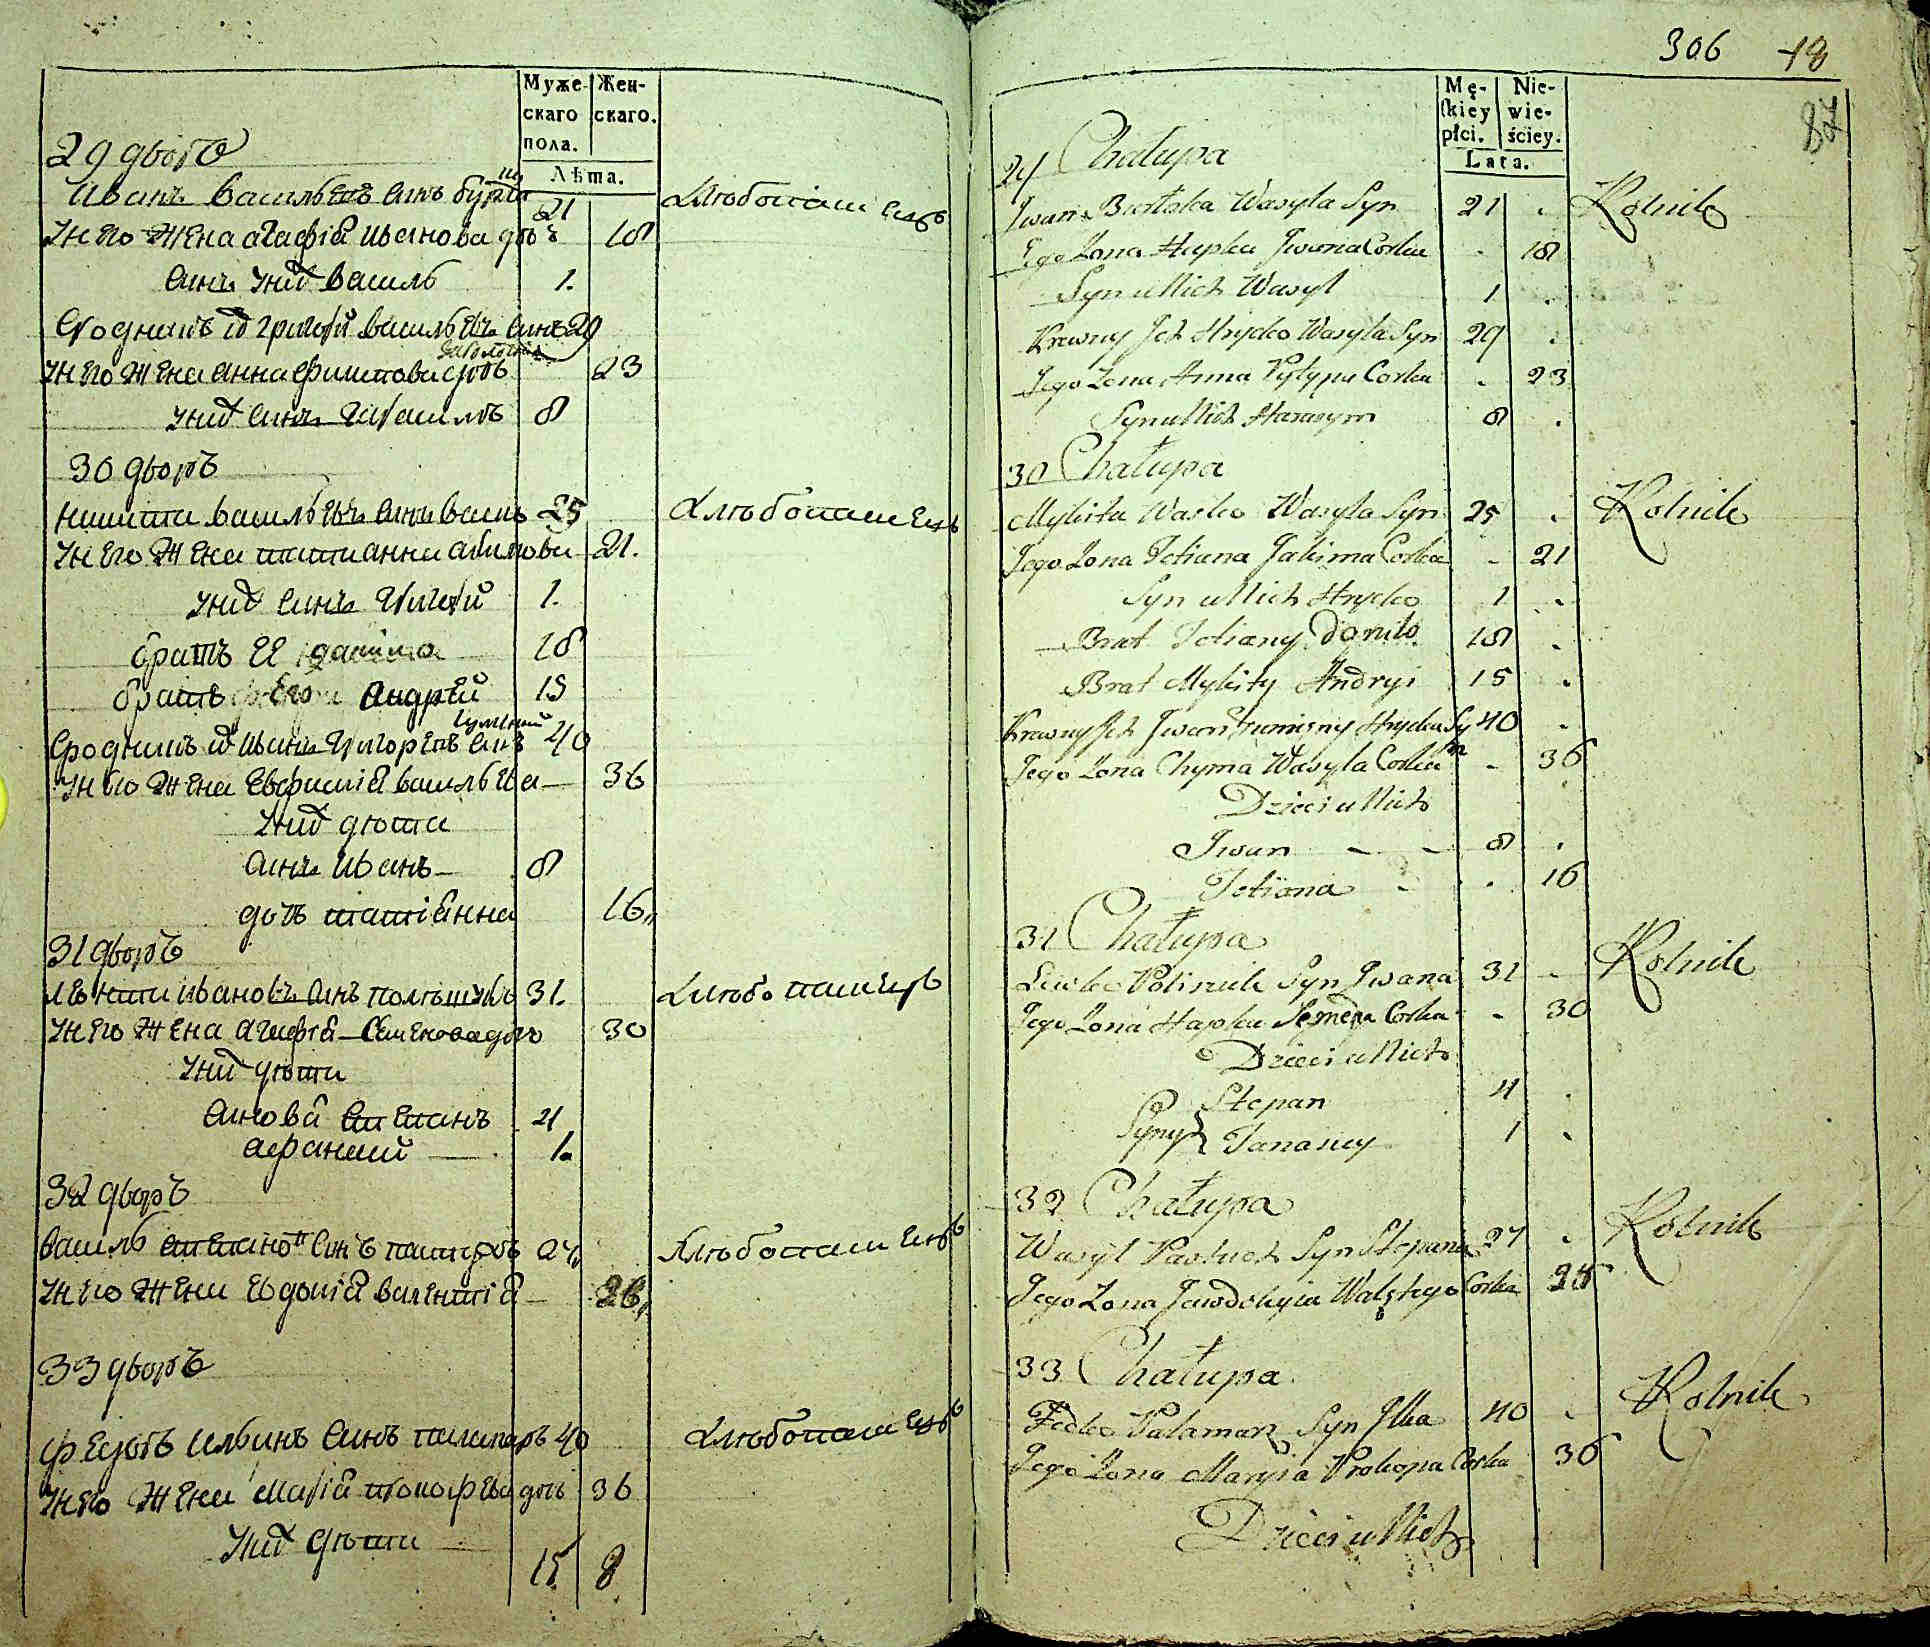 Муже-
скаго
пола.
Жен-
скаго.
Лѣта.
29 дворъ
Иванъ Васильевъ синъ 21
У него жена Агафія Иванова дочь 18
синъ у нихъ Василь 1.
Сродникъ ихъ Григорій Васильевъ синъ 29
У него жена Анна Филипова дочь 23
у нихъ синъ Герасимъ 8
30 дворъ
Никита Васильевъ синъ Васко 25
У него жена Татианна Акимова 21.
у нихъ синъ Григорій 1.
братъ ее Данило 18
братъ его Андрей 15
Сродникъ ихъ Иванъ Григоревъ синъ 40
У него жена Евфимія Васильева 36
У нихъ дѣти
синъ Иванъ 8
дочь Татіанна 16
31 дворъ
Левко Ивановъ синъ Полѣщукъ 31.
У него жена Агафія Семенова дочь 30
У нихъ дѣти
синовя Степанъ 4
Афанасий 1.
32 дворъ
Василь Степановъ синъ 27
У него жена Евдокія 26
33 дворъ
Федоръ Ильинъ синъ Паламаръ 40
У него жена Марія Прокофева дочь 36
У нихъ дѣти
15 8
306 18
87
Mę-
skiey
płci.
Nie-
wie-
ściey.
Lata.
29 Chałupa
Iwan Wasyla Syn 21 . Rolnik
Jego Zona Hapka Iwana Corka . 18
Syn u Nich Wasyl 1 .
Krewny Jch Hrycko Wasyla Syn 29 .
Jego Zona Anna Pyłypa Corka . 23
Syn u Nich Harasym 8 .
30 Chałupa
Mykita Wasko Wasyla Syn 25 . Rolnik
Jego Zona Tetiana Jakima Corka - 21
Syn u Nich Hrycko 1 .
Brat Tetiany Daniło 18 .
Brat Mykity Andryi 15 .
Krewny Jch Iwan Hrycka Syn 40 .
Jego Zona Chyma Wasyla Corka - 36
Dzieci u Nich
Iwan - - 8 .
Tetiana - . 16
31 Chałupa
Lewko Poliszuk Syn Iwana 31 - Rolnik
Jego Zona Hapka Semena Corka - 30
Dzieci u Nich
Syny { Stepan 4 .
Tanasiey 1 .
32 Chałupa
Wasyl Pastuch Syn Stepana 27 . Rolnik
Jego Zona Jewdokyia Corka 25
33 Chałupa
Fedko Palamar Syn Ilka 40 . Rolnik
Jego Zona Maryia Prokopa Corka 36
Dzieci u Nich